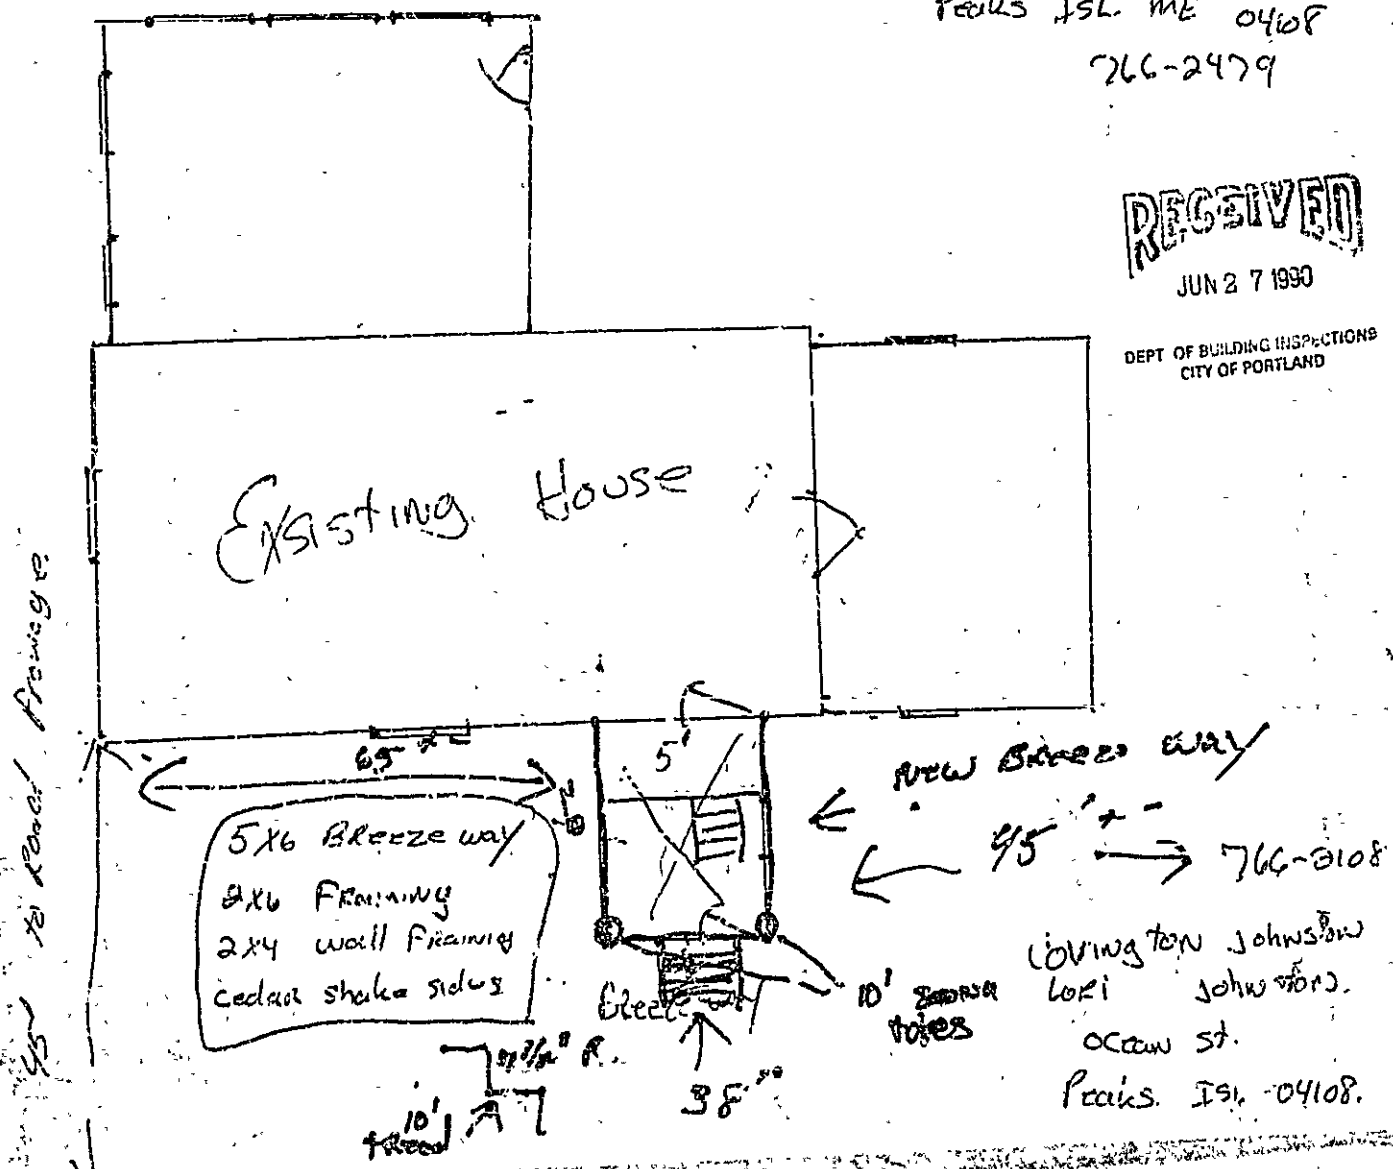 Peaks ISL. ME 04108
766-2479
RECEIVED
JUN 27 1990
DEPT OF BUILDING INSPECTIONS
CITY OF PORTLAND
Exsisting House
5'
New Breeze way
45' + -
766-2108
5x6 Breeze way
2x6 Framing
2x4 wall Framing
cedar shake sides
45 to Road Frontage
Lovington Johnston
Lori Johnston.
ocean st.
Peaks. Isl. 04108.
10'
Breeze
38"
10'
tread